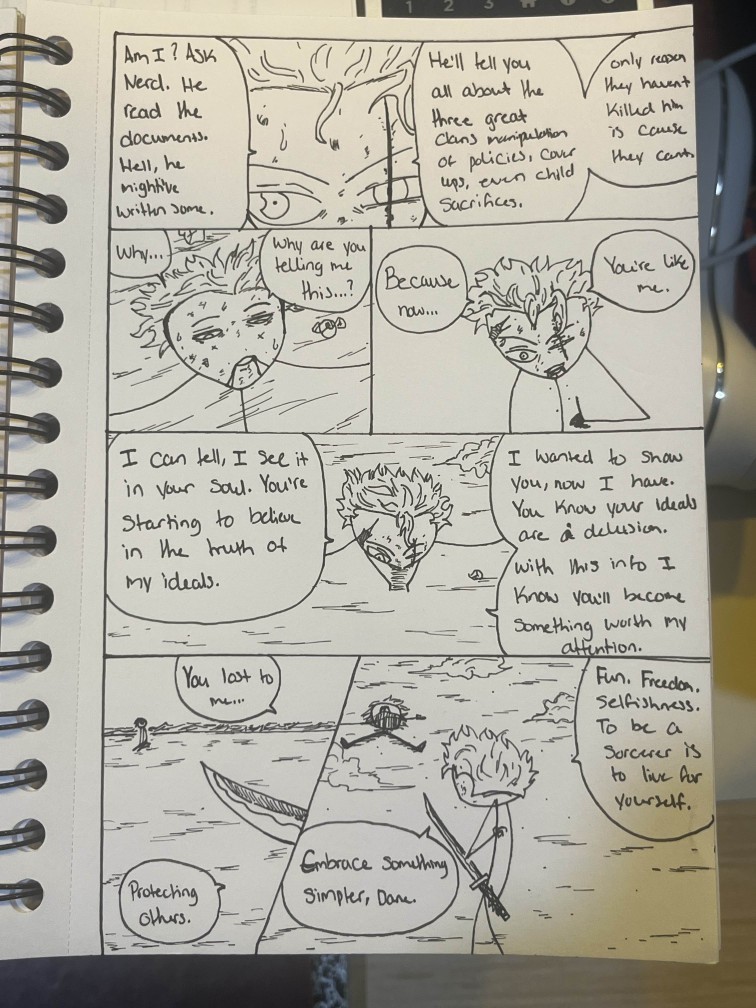 Am I? Ask
Nerd. He
read the
documents.
Hell, he
might've
written some.
He'll tell you
all about the
three great
clans manipulation
of policies, cover
ups, even child
sacrifices.
only reason
they havent
killed him
is cause
they cant.
Why...
Why are you
telling me
this...?
Because
now...
You're like
me.
I can tell, I see it
in your soul. You're
starting to believe
in the truth of
my ideals.
I wanted to show
you, now I have.
You know your ideals
are a delusion.
With this info I
know you'll become
something worth my
attention.
You lost to
me...
Protecting
others.
Embrace something
simpler, Dane.
Fun. Freedom.
Selfishness.
To be a
Sorcerer is
to live for
yourself.
1 2 3